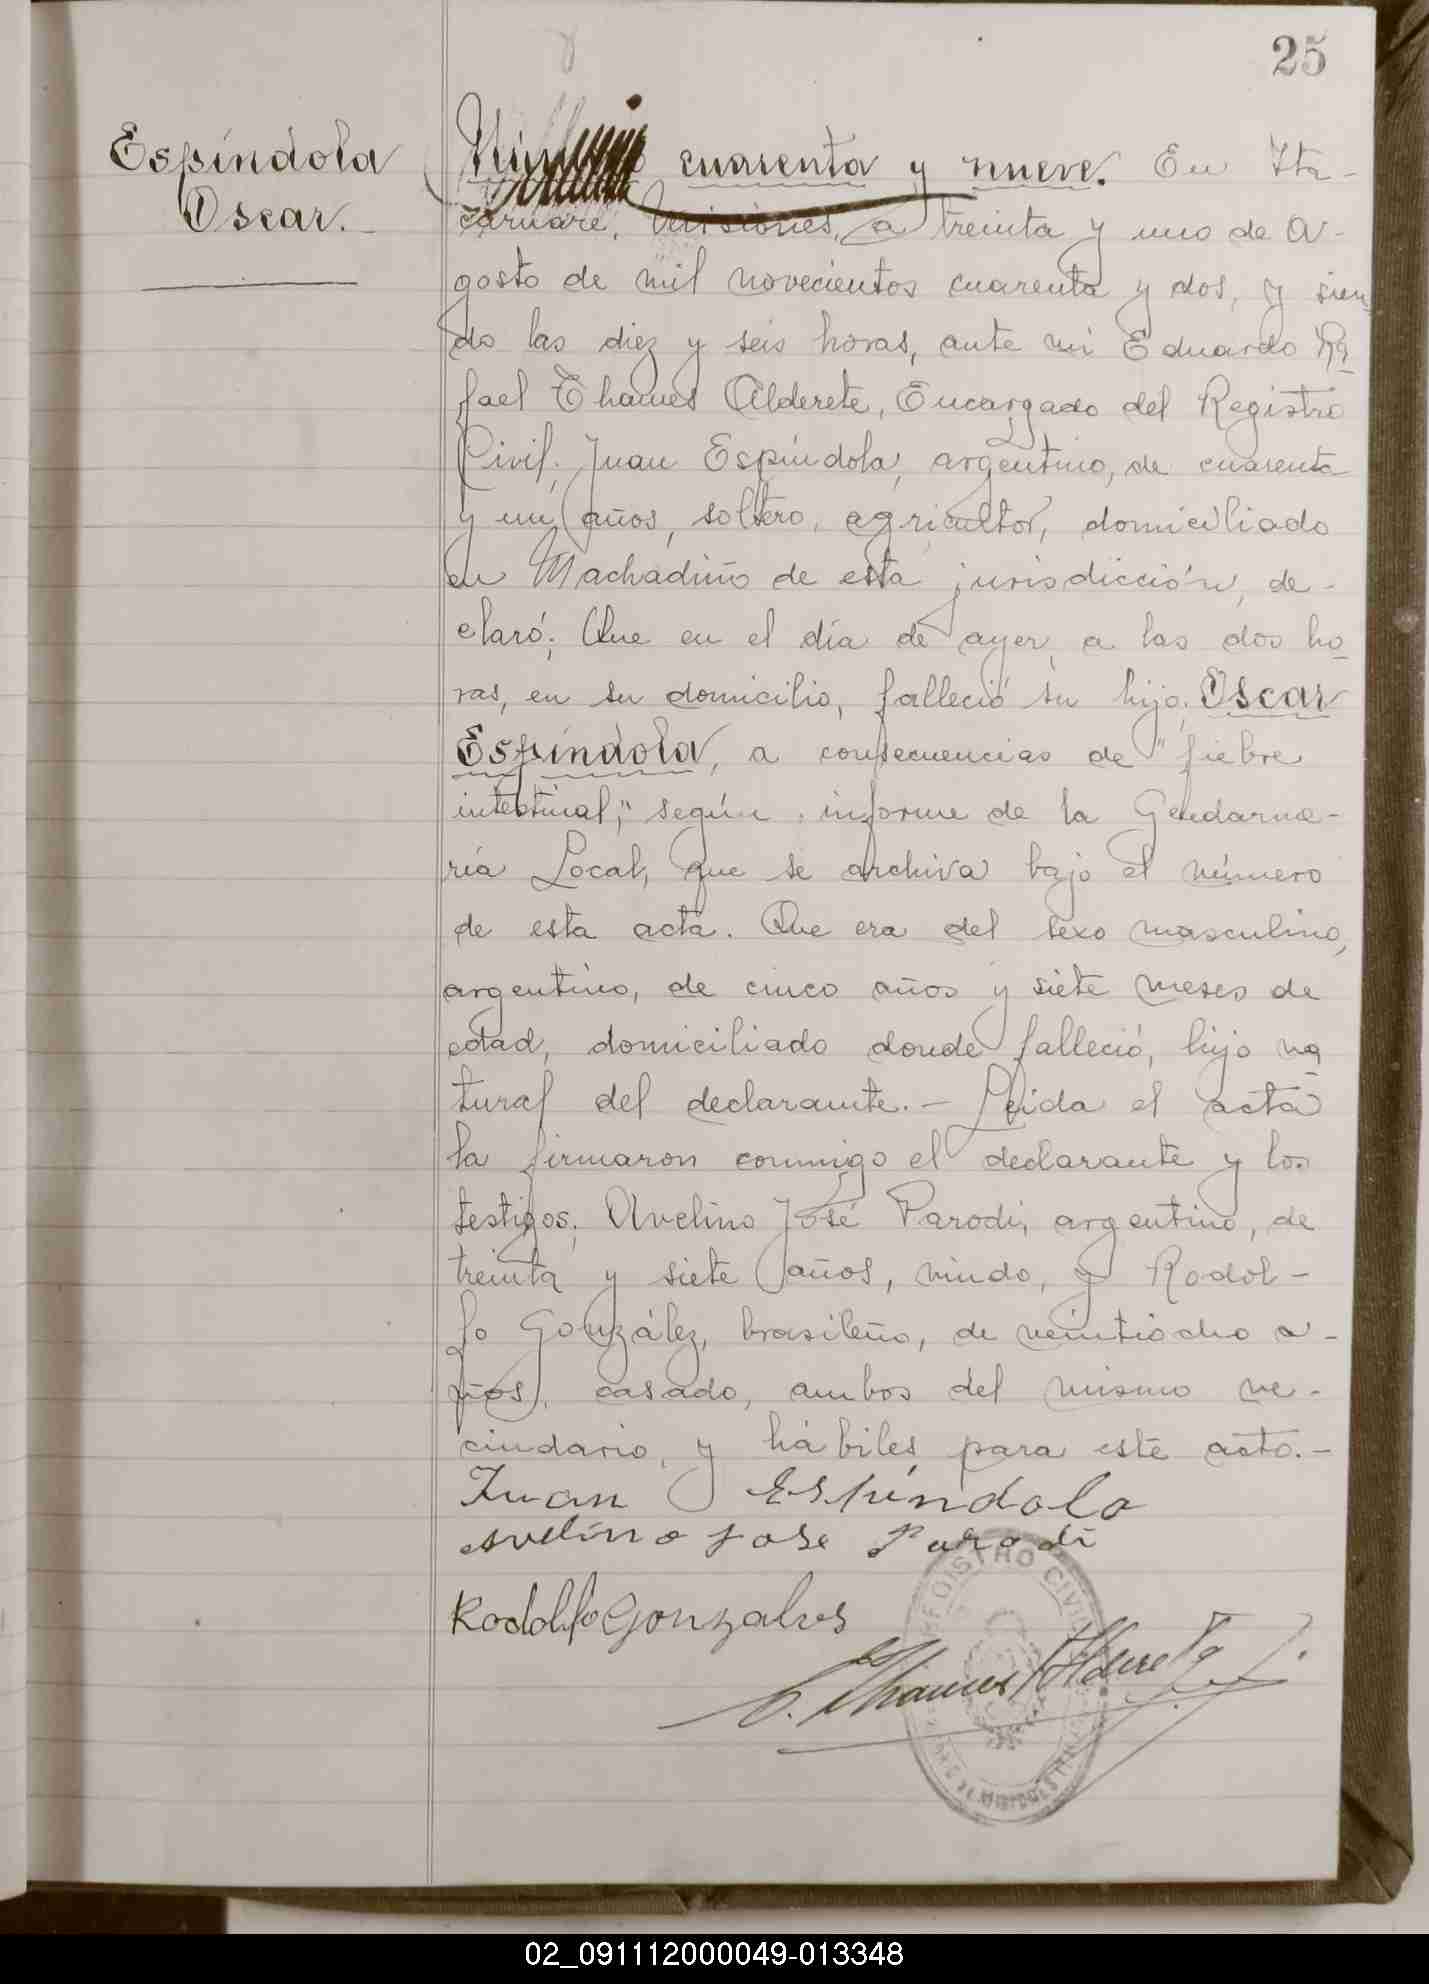 25
Espíndola
Oscar.
Número cuarenta y nueve. En Ita-
caruaré, Misiones, a treinta y uno de A-
gosto de mil novecientos cuarenta y dos, y sien
do las diez y seis horas, ante mí Eduardo Ra
fael Thames Alderete, Encargado del Registro
Civil, Juan Espíndola, argentino, de cuarenta
y un años, soltero, agricultor, domiciliado
en Machadiño de esta jurisdicción, de-
claró: Que en el día de ayer, a las dos ho
ras, en su domicilio, falleció su hijo: Oscar
Espíndola, a consecuencias de "fiebre
intestinal," según informe de la Gendarme-
ría Local, que se archiva bajo el número
de esta acta. Que era del sexo masculino,
argentino, de cinco años y siete meses de
edad, domiciliado donde falleció, hijo na
tural del declarante.- Leída el acta
la firmaron conmigo el declarante y los
testigos: Avelino José Parodi, argentino, de
treinta y siete años, viudo, y Rodol-
fo González, brasileño, de veintiocho a-
ños, casado, ambos del mismo ve-
cindario, y hábiles para este acto.-
Juan Espíndola
Avelino Jose Parodi
Rodolfo Gonzalves
E. Thames Alderete
REGISTRO CIVIL
02_091112000049-013348